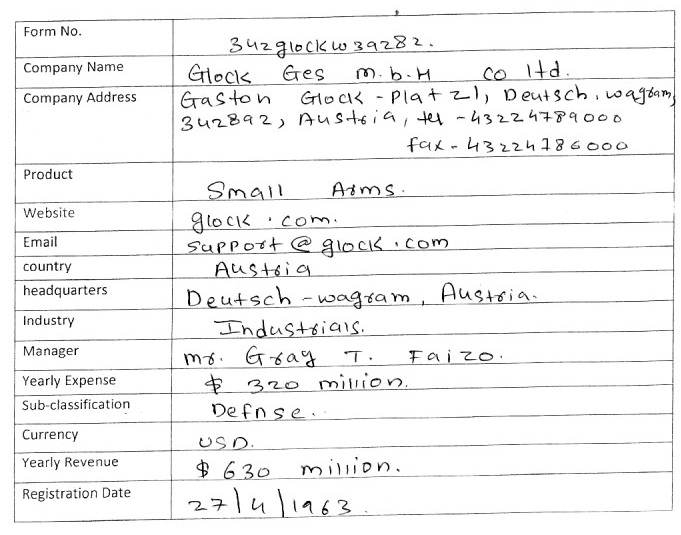 Form No. 342glockw39282.
Company Name Glock Ges m.b.H co ltd.
Company Address Gaston Glock - Platz 1, Deutsch, wagram,
342892, Austria, tel - 43224789000
fax - 43224786000
Product Small Arms.
Website glock.com.
Email support@glock.com
country Austria
headquarters Deutsch - wagram, Austria.
Industry Industrials.
Manager mr. Gray T. Faizo.
Yearly Expense $ 320 million.
Sub-classification Defnse..
Currency USD.
Yearly Revenue $ 630 million.
Registration Date 27/4/1963